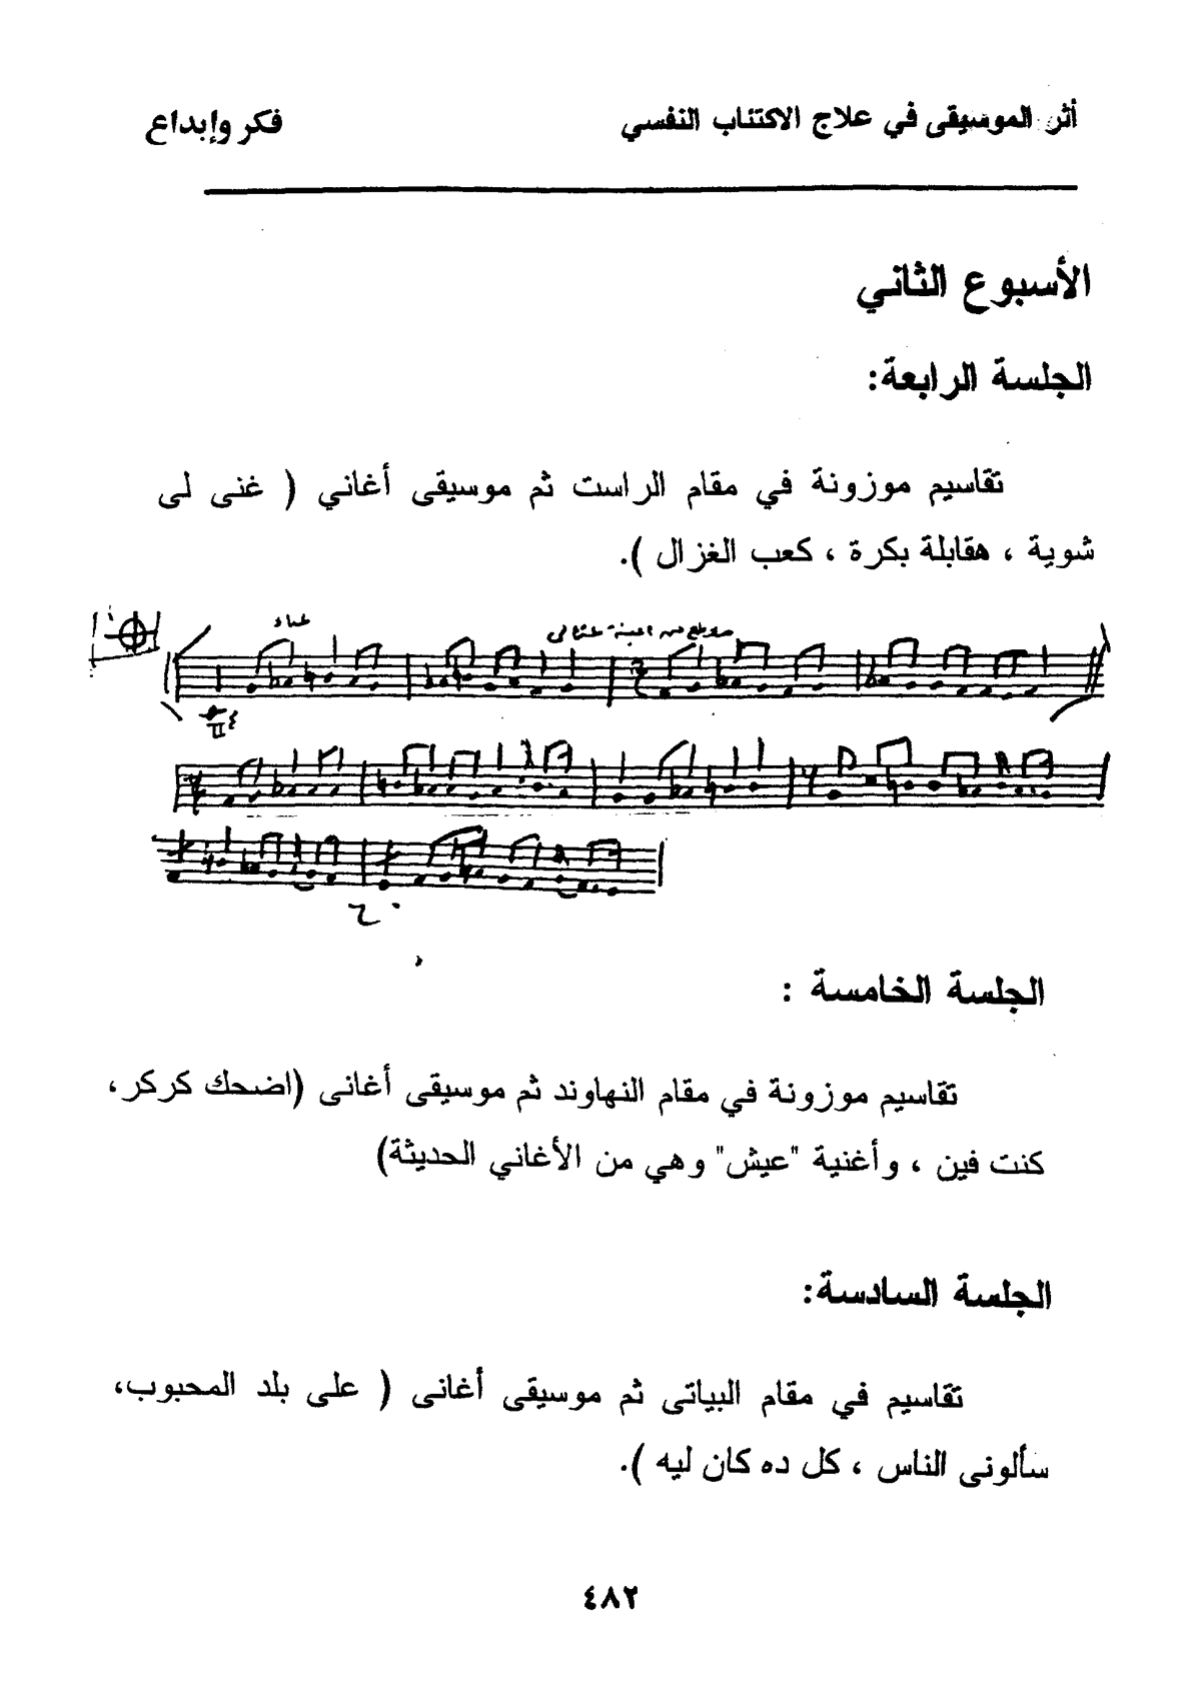 أثر الموسيقى في علاج الاكتئاب النفسي
فكر وإبداع
الأسبوع الثاني
الجلسة الرابعة:
تقاسيم موزونة في مقام الراست ثم موسيقى أغاني ( غنى لى
شوية ، هقابلة بكرة ، كعب الغزال ).
الجلسة الخامسة :
تقاسيم موزونة في مقام النهاوند ثم موسيقى أغانى (اضحك كركر،
كنت فين ، وأغنية "عيش" وهي من الأغاني الحديثة)
الجلسة السادسة:
تقاسيم في مقام البياتى ثم موسيقى أغانى ( على بلد المحبوب،
سألونى الناس ، كل ده كان ليه ).
٤٨٢